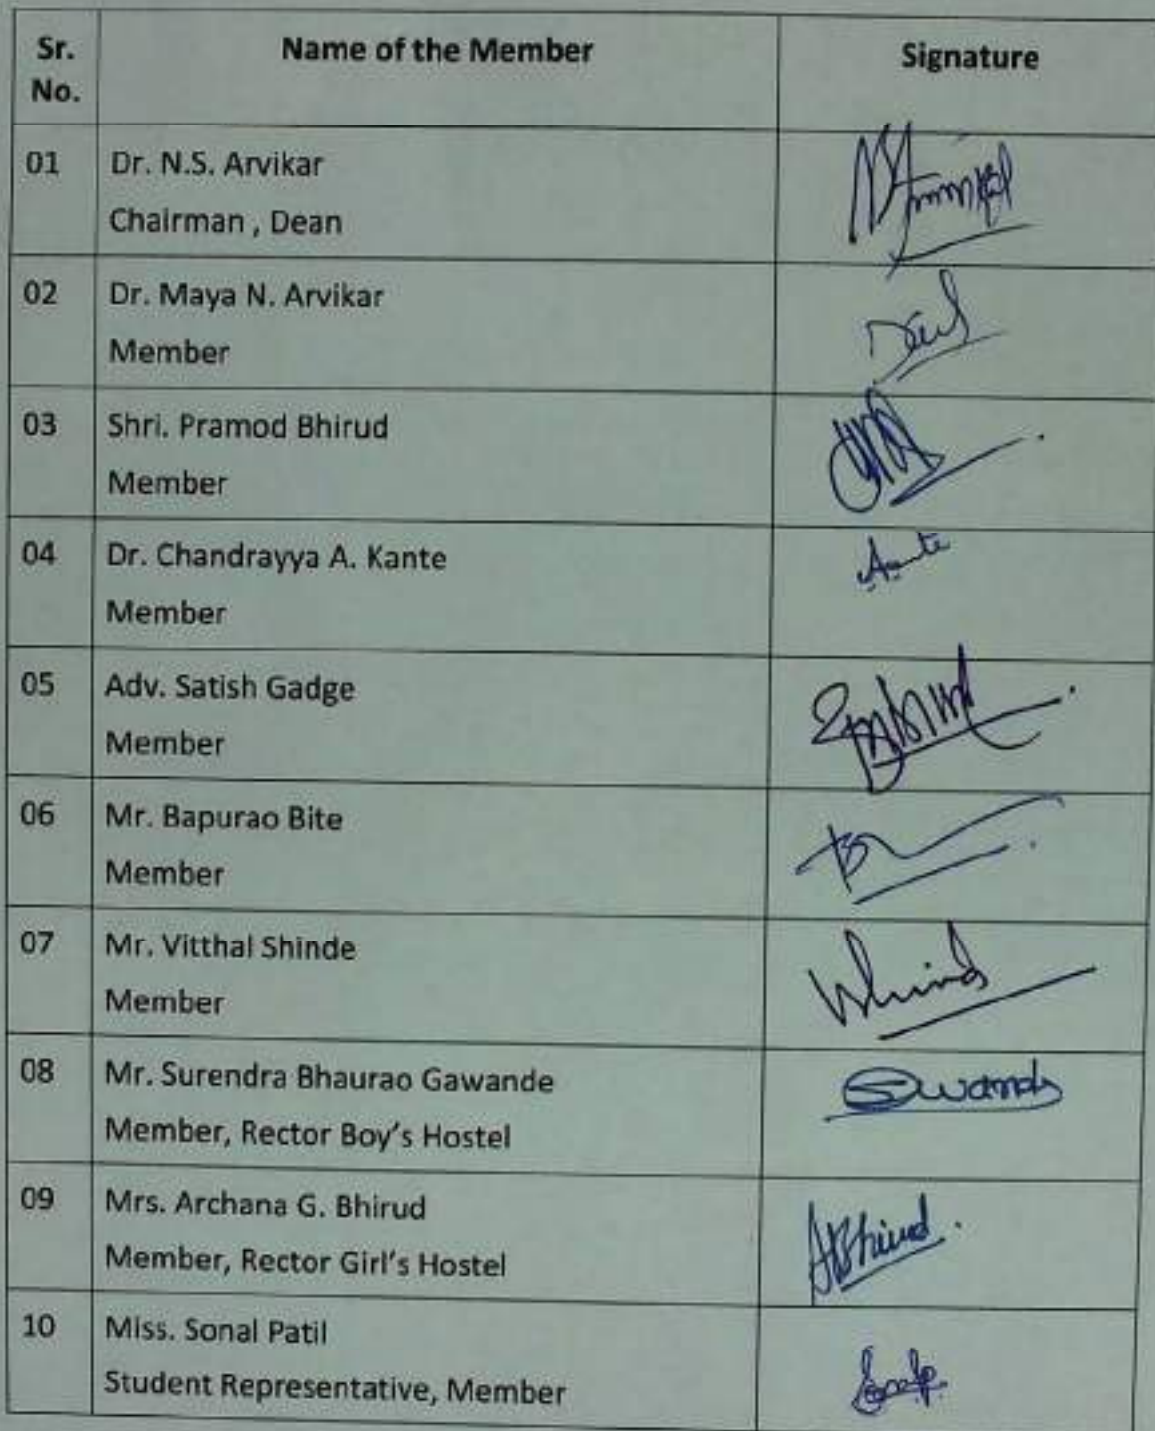 Sr. No. Name of the Member Signature
01 Dr. N.S. Arvikar
Chairman , Dean
02 Dr. Maya N. Arvikar
Member
03 Shri. Pramod Bhirud
Member
04 Dr. Chandrayya A. Kante
Member
05 Adv. Satish Gadge
Member
06 Mr. Bapurao Bite
Member
07 Mr. Vitthal Shinde
Member
08 Mr. Surendra Bhaurao Gawande
Member, Rector Boy's Hostel
09 Mrs. Archana G. Bhirud
Member, Rector Girl's Hostel
10 Miss. Sonal Patil
Student Representative, Member